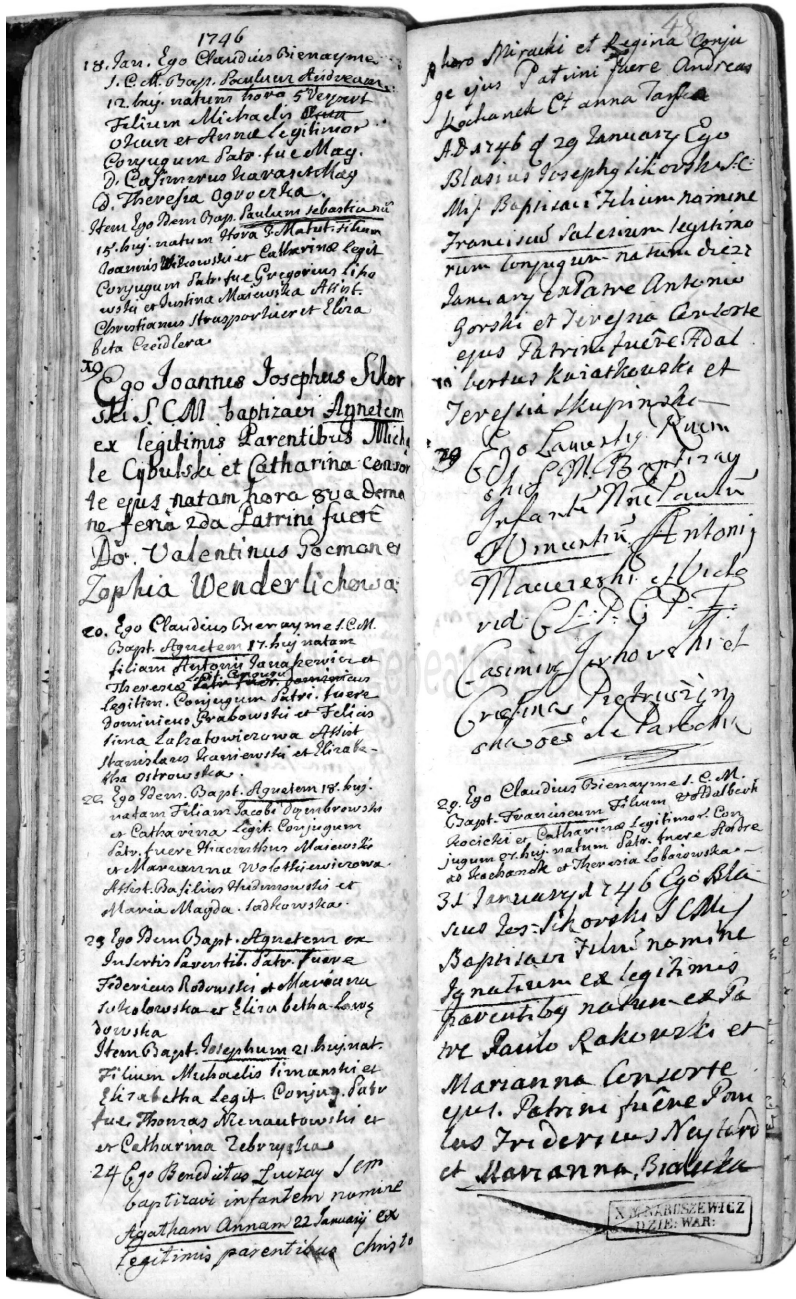 1746
18. Jan. Ego Claudius Bienayme
S.C.M. Bap. Paulum Andream
12. huj. natum hora 5 Vespert
Filium Michaelis
et Annæ Legitimor
Conjugum Patr. fue Mag.
D. Casimirus et Mag
D. Theresia Ogrocka.
Item Ego Idem Bap. Paulum Sebastianū
15. huj. natum Hora 9. Matut. filium
Joannis Wikowski et Catharinæ Legit
Conjugum Patr. fue Gregorius Lipo
wski et Justina Maiewska Assist.
Christianus et Eliza
beta Czeidlera
19
Ego Joannes Josephus Sikor
ski S.C.M. baptizavi Agnetem
ex legitimis Parentibus Micha
le Cybulski et Catharina consor
te ejus natam hora 8va de ma
ne feria 2da Patrini fuerē
Dō. Valentinus Pocman et
Zophia Wenderlichowa
20. Ego Claudius Bienayme S.C.M.
Bapt. Agnetem 17. huj natam
filiam Antonii Janaszewicz et
Theresiæ
legitim. Conjugum Patri. fuere
Dominicus Grabowski et Felicis
sima Assist
Stanislaus Kaniewski et Elizabe-
tha Ostrowska.
22. Ego Idem. Bapt. Agnetem 18. huj.
natam Filiam Jacobi Dąmbrowski
et Catharina Legit. Conjugum
Patr. fuere Hiacinthus Maiewski
et Marianna Wolotkiewiczowa
Assist. Basilius et
Maria Magda. Sadkowska.
23 Ego Idem Bapt. Agnetem ex
Incertis Parentib. Patr. fuere
Federicus Rodowski et Marianna
Sokolowska et Elizabetha
dowska
Item Bapt. Josephum 21. huj. nat.
Filium Michaelis Simanski et
Elizabetha Legit. Conjug. Patr
fue. Thomas et
et Catharina
24 Ego Benedictus Luczay S CM
baptizavi infantem nomine
Agatham Annam 22 Januarij ex
Legitimis parentibus Christo
48
phero Miracki et Regina Conju
ge ejus Patrini fuere Andreas
Kochanek Et anna
A.D 1746 d 29 January Ego
Blasius Josephg Sikorski S.C.
Mis Baptisavi Filium nomine
Franciscū Salesium legitimo
rum Conjugum natum die 27
January ex Patre Antonio
Gorski et Teressia Consorte
ejus Patrini fuêre Adal
bertus Kwiatkowski et
Teressia Skupinska
29 Ego
S.M. Baptizavi
Infantē Nnē Paulū
Antonij
et
vid: C L: P. C P. F:
Casimirg et
Pietruszin
ska oēs de Parochia
29. Ego Claudius Bienayme S.C.M.
Bapt. Franciscum Filium Adalberti
Kocicki et Catharinæ Legitimor. Con
jugum 27. huj. natum Patr. fuere Andre
as Kochanek et Theresia Loboiowska
31 January A 1746 Ego Bla
sius Jos: Sikorski S C Mis
Baptisavi Filiū nomine
Ignatium ex legitimis
parentibg natum ex Pa
tre Paulo Rakowski et
Marianna Consorte
ejus. Patrini fuêre Pau
lus Fridericus Neytard
et Marianna Bialska
X.M. NARUSZEWICZ
DZIE: WAR: